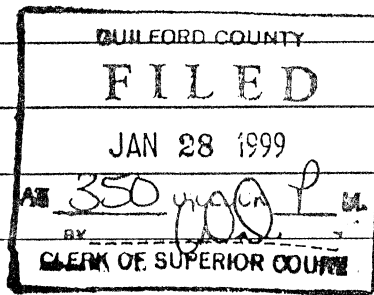 GUILFORD COUNTY
FILED
JAN 28 1999
AT 350 P M.
BY
CLERK OF SUPERIOR COURT